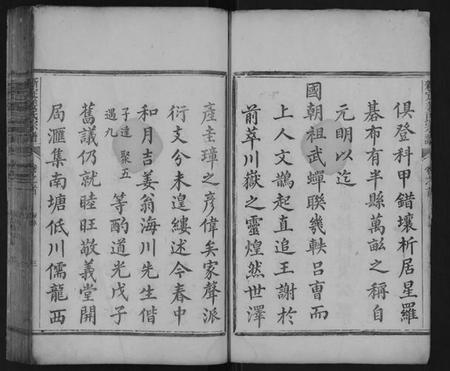 俱登科甲錯壤析居星羅
棊布有半縣萬畝之稱自
元明以迄
國朝祖武蟬聯幾軼呂曺而
上人文鵲起直追王謝於
前萃川嶽之靈煌然世澤
產圭璋之彦偉矣家聲派
衍支分未遑縷述今春中
和月吉姜翁海川先生偕
子達 聚五
遇九
等酌道光戊子
舊議仍就睦旺敬義堂開
局滙集南塘低川儒龍西